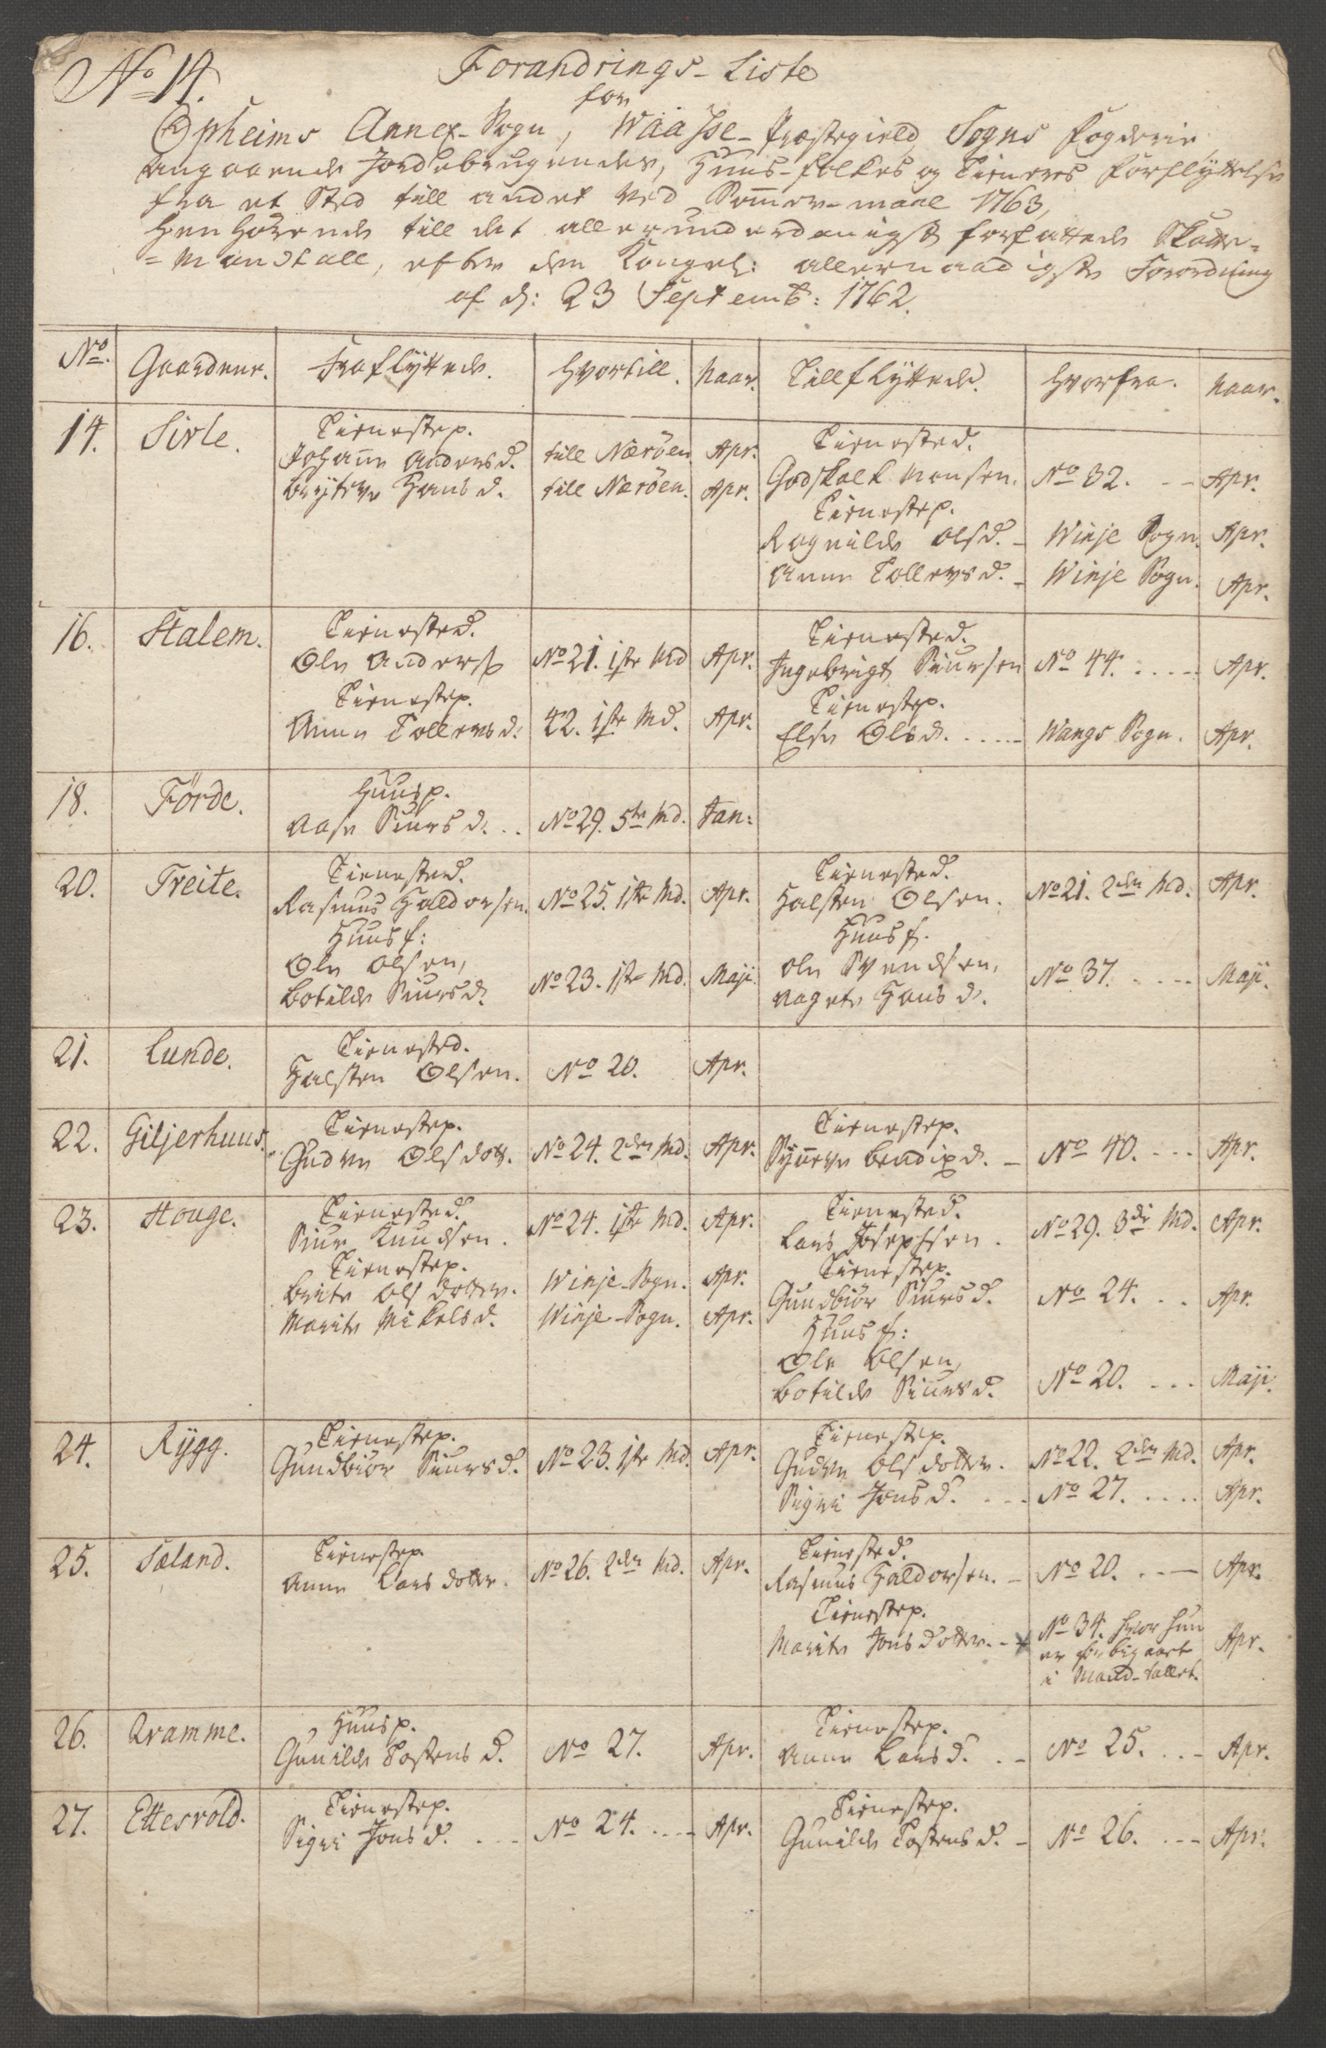 No 14.
Forandrings-Liste
for
Opheims Annex-Sogn, Waasse-Præstegield, Sogns fogderie,
angaaende Jordebrugendes, Huus-folkes og Tieneres Forflyttelse
fra et Sted till andet ved Sommer-maal 1763,
henhörende till det allerunderdanigst forfattede Skatte-
=Mandtall, efter den Kongel: allernaadigste Forordning
af d: 23 Septemb: 1762.
No. Gaardene. Fraflyttede. Hvortill. Naar. Tillflyttede. Hvorfra. Naar.
14. Sirle. Tienestep. Tienested.
Johanne Andersd. till Næröen. Apr. Godskalk Monsen. No 32. Apr.
Bryteve Hansd. till Næröen. Apr. Tienestep.
Ragnilde Olsd. Winje Sogn. Apr.
Anne Tollevsd. Winje Sogn. Apr.
16. Stalem. Tienested. Tienested.
Ole Anderss No 21. 1ste Md Apr. Ingebrigt Siursen No 44. Apr.
Tienestep. Tienestep.
Anne Tollevsd. 22. 1ste Md. Apr. Else Olsd. Wangs Sogn. Apr.
18. Förde. Huusp.
Aase Siursd. No 29. 5te Md. Jan:
20. Treite. Tienested. Tienested.
Rasmus Haldorsen. No 25. 1ste Md. Apr. Halsten Olsen. No 21. 2den Md. Apr.
Huusf: Huusf.
Ole Olsen, Ole Svendsen,
Botilde Siursd. No 23. 1ste Md. Maji Aagete Hansd. No 37. Maji.
21. Lunde. Tienested.
Halsten Olsen. No 20. Apr.
22. Giljerhuus. Tienestep. Tienestep.
Gudve Olsdotter. No 24. 2den Md. Apr. Synneve Bendixd. No 40. Apr.
23. Houge. Tienested. Tienested.
Siur Knudsen. No 24. 1ste Md. Apr. Lars Josephsen. No 29. 3die Md. Apr.
Tienestep. Tienestep.
Brite Olsdotter. Winje-Sogn. Apr. Gundbiör Siursd. No 24. Apr.
Marite Mikelsd. Winje-Sogn. Apr. Huusf:
Ole Olsen,
Botilde Siursd. No 20. Maji.
24. Rygg. Tienestep. Tienestep.
Gundbiör Siursd. No 23. 1ste Md. Apr. Gudve Olsdotter. No 22. 2den Md. Apr.
Sigri Jonsd. No 27. Apr.
25. Sæland. Tienestep. Tienested.
Anne Larsdotter. No 26. 2den Md. Apr. Rasmus Haldorsen. No 20. Apr.
Tienestep.
Marite Jonsdotter. No 34. hvor hun Apr.
er forbigaaet
i Mand-tallet.
26. Qvamme. Huusp. Tienestep.
Gunilde Tostensd. No 27. Apr. Anne Larsd. No 25. Apr.
27. Ettesvold. Tienestep. Tienestep.
Sigri Jonsd. No 24. Apr. Gunilde Tostensd. No 26. Apr.